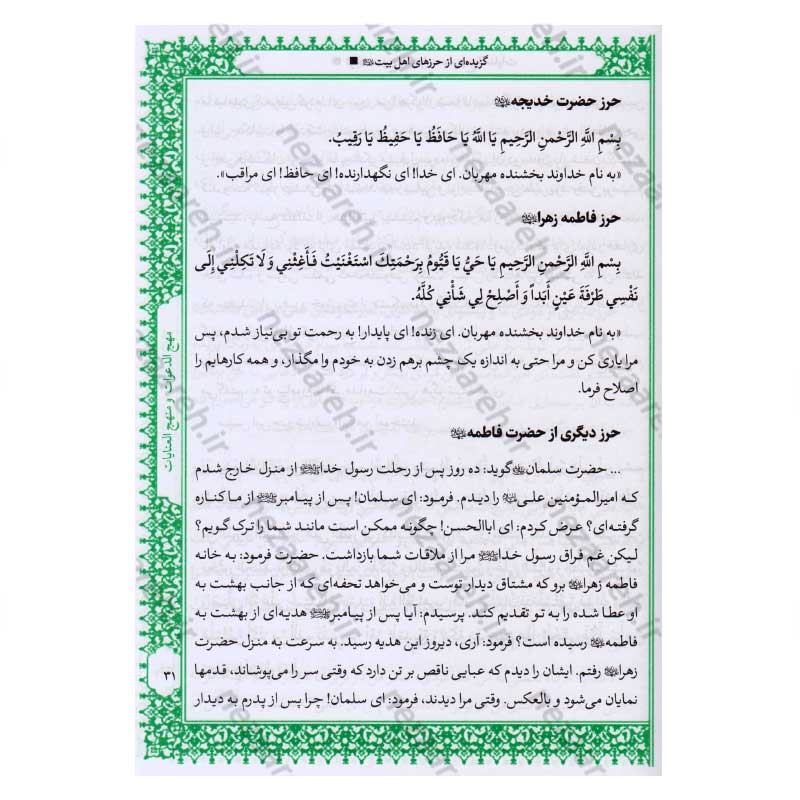 گزیده‌ای از حرزهای اهل بیت ■
حرز حضرت خدیجه
بِسْمِ اللَّهِ الرَّحْمنِ الرَّحِيمِ يَا اللَّهُ يَا حَافِظُ يَا حَفِيظُ يَا رَقِيبُ.
«به نام خداوند بخشنده مهربان. ای خدا! ای نگهدارنده! ای حافظ! ای مراقب».
حرز فاطمه زهرا
بِسْمِ اللَّهِ الرَّحْمنِ الرَّحِيمِ يَا حَيُّ يَا قَيُّومُ بِرَحْمَتِكَ اسْتَغْنَيْتُ فَأَغِثْنِي وَ لَا تَكِلْنِي إِلَى
نَفْسِي طَرْفَةَ عَيْنٍ أَبَداً وَ أَصْلِحْ لِي شَأْنِي كُلَّهُ.
«به نام خداوند بخشنده مهربان. ای زنده! ای پایدار! به رحمت تو بی‌نیاز شدم، پس
مرا یاری کن و مرا حتی به اندازه یک چشم برهم زدن به خودم وا مگذار، و همه کارهایم را
اصلاح فرما.
حرز دیگری از حضرت فاطمه
... حضرت سلمان گوید: ده روز پس از رحلت رسول خدا از منزل خارج شدم
که امیرالمؤمنین علی را دیدم. فرمود: ای سلمان! پس از پیامبر از ما کناره
گرفته‌ای؟ عرض کردم: ای اباالحسن! چگونه ممکن است مانند شما را ترک گویم؟
لیکن غم فراق رسول خدا مرا از ملاقات شما بازداشت. حضرت فرمود: به خانه
فاطمه زهرا برو که مشتاق دیدار توست و می‌خواهد تحفه‌ای که از جانب بهشت به
او عطا شده را به تو تقدیم کند. پرسیدم: آیا پس از پیامبر هدیه‌ای از بهشت به
فاطمه رسیده است؟ فرمود: آری، دیروز این هدیه رسید. به سرعت به منزل حضرت
زهرا رفتم. ایشان را دیدم که عبایی ناقص بر تن دارد که وقتی سر را می‌پوشاند، قدمها
نمایان می‌شود و بالعکس. وقتی مرا دیدند، فرمود: ای سلمان! چرا پس از پدرم به دیدار
مهج الدعوات و منهج العنایات
۳۱
nezaareh.ir